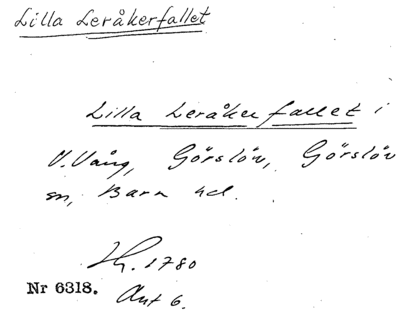 Lilla Leråkerfallet
Lilla Leråkerfallet i
V. Vång, Görslöv, Görslöv
sn, Bara hd.
Lh. 1780
Nr 6318. Akt 6.